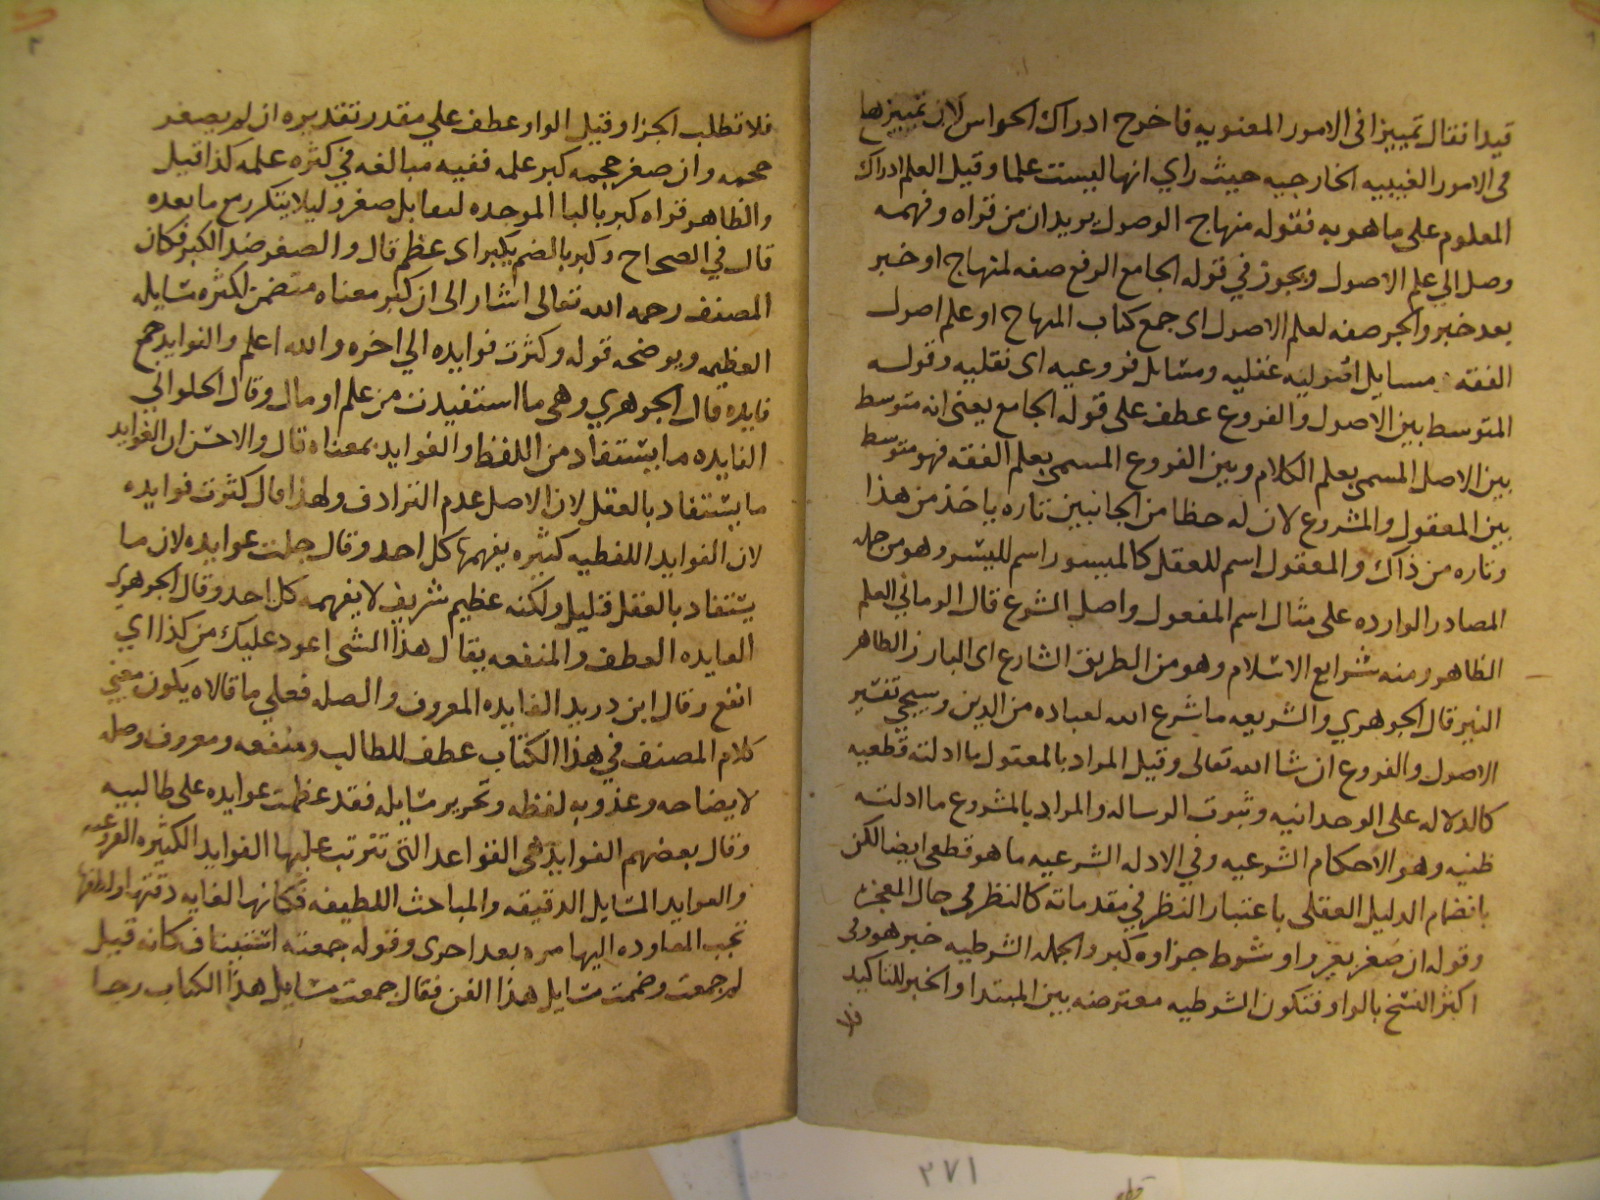 قيدا فقال تمييزا في الامور المعنويه فاخرج ادراك الحواس لان تمييزها
في الامور الغيبيه الخارجيه حيث راي انها ليست علما وقيل العلم ادراك
المعلوم على ما هو به فقوله منهاج الوصول يريد ان من قراه وفهمه
وصل الي علم الاصول ويجوز في قوله الجامع الرفع صفه لمنهاج او خبر
بعد خبر والجر صفه لعلم الاصول اى جمع كتاب المنهاج او علم اصول
الفقه مسايل اصوليه عقليه ومسايل فروعيه اى نقليه وقوله
المتوسط بين الاصول والفروع عطف على قوله الجامع يعنى انه متوسط
بين الاصل المسمى بعلم الكلام وبين الفروع المسمى بعلم الفقه فهو متوسط
بين المعقول والمشروع لان له حظا من الجانبين تاره ياخذ من هذا
وتاره من ذاك والمعقول اسم للعقل كالميسور اسم لليسر وهو من جمله
المصادر الوارده على مثال اسم المفعول واصل الشرع قال الرماني العلم
الظاهر ومنه شرايع الاسلام وهو من الطريق الشارع اى البارز الظاهر
النير قال الجوهري والشريعه ما شرع الله لعباده من الدين وسيجي تفسير
الاصول والفروع ان شا الله تعالى وقيل المراد بالمعقول ما ادلته قطعيه
كالدلاله على الوحدانيه وثبوت الرساله والمراد بالمشروع ما ادلته
ظنيه وهو الاحكام الشرعيه وفي الادله الشرعيه ما هو قطعى ايضا لكن
بانضمام الدليل العقلى باعتبار النظر في مقدماته كالنظر في حال المعجزه
وقوله ان صغر بغير واو شرط جزاوه كبر والجمله الشرطيه خبر هو وفى
اكثر النسخ بالواو فتكون الشرطيه معترضه بين المبتدا والخبر للتاكيد
فلا
فلا تطلب الجزا وقيل الواو عطف علي مقدر تقديره ان لم يصغر
حجمه وان صغر حجمه كبر علمه ففيه مبالغه في كثره علمه كذا قيل
والظاهر قراه كبر بالبا الموحده ليقابل صغر وليلا يتكرر مع ما بعده
قال في الصحاح وكبر بالضم يكبر اى عظم قال والصغر ضد الكبر فكان
المصنف رحمه الله تعالى اشار الى ان كبر معناه متضمن لكثره مسايله
العظيمه ويوضحه قوله وكثرت فوايده الي اخره والله اعلم والفوايد جمع
فايده قال الجوهري وهى ما استفيدت من علم او مال وقال الحلواني
الفايده ما يستفاد من اللفظ والفوايد بمعناه قال والاحسن ان الفوايد
ما يستفاد بالعقل لان الاصل عدم الترادف ولهذا قال كثرت فوايده
لان الفوايد اللفظيه كثيره يفهمها كل احد وقال جلت عوايده لان ما
يستفاد بالعقل قليل ولكنه عظيم شريف لا يفهمه كل احد وقال الجوهري
العايده العطف والمنفعه يقال هذا الشى اعود عليك من كذا اي
انفع وقال ابن دريد العايده المعروف والصله فعلي ما قالاه يكون معني
كلام المصنف في هذا الكتاب عطف للطالب ومنفعه ومعروف وصله
لايضاحه وعذوبه لفظه وتحرير مسايله فقد عظمت عوايده على طالبيه
وقال بعضهم الفوايد هى القواعد التى تترتب عليها الفوايد الكثيره الفروعيه
والعوايد المسايل الدقيقه والمباحث اللطيفه فكانها لغايه دقتها ولطفها
تجب المعاوده اليها مره بعد اخرى وقوله جمعته استيناف كانه قيل
لم جمعت وضممت مسايل هذا الفن فقال جمعت مسايل هذا الكتاب رجا
٢٧١